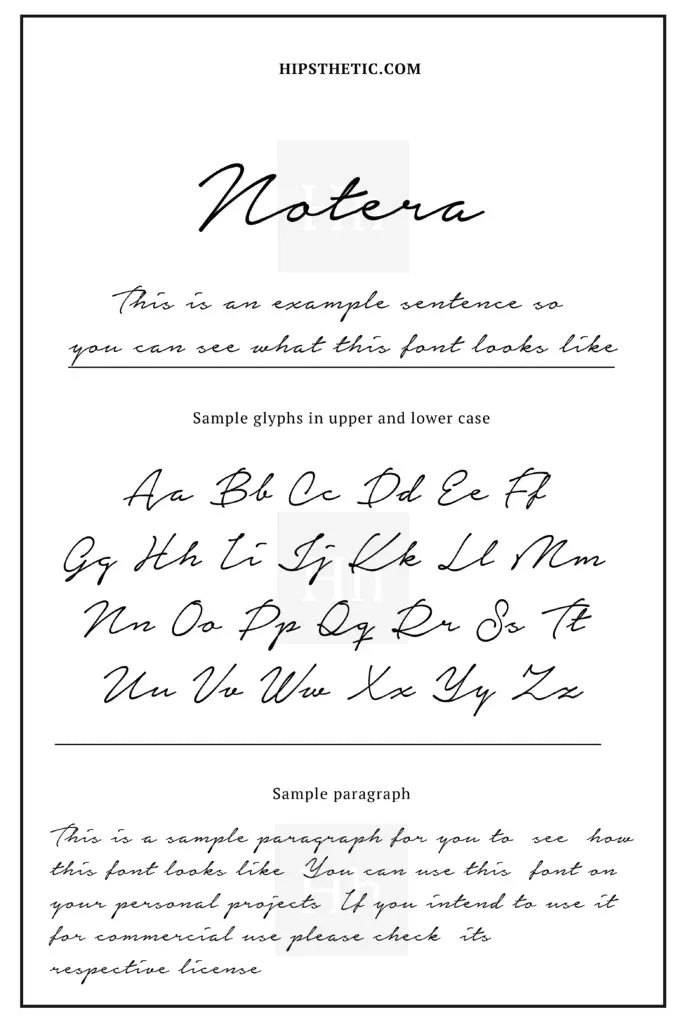 HIPSTHETIC.COM
Notera
This is an example sentence so
you can see what this font looks like
Sample glyphs in upper and lower case
Aa Bb Cc Dd Ee Ff
Gg Hh Ii Jj Kk Ll Mm
Nn Oo Pp Qq Rr Ss Tt
Uu Vv Ww Xx Yy Zz
Sample paragraph
This is a sample paragraph for you to see how
this font looks like You can use this font on
your personal projects If you intend to use it
for commercial use please check its
respective license